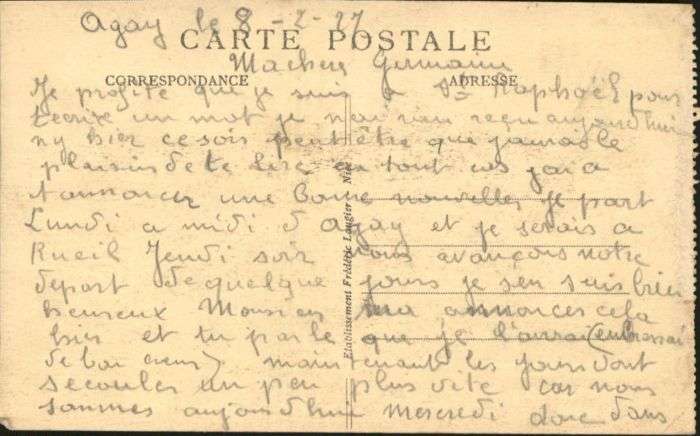 Agay le 8-2-27
CARTE POSTALE
Machere Germaine
CORRESPONDANCE
ADRESSE
Je profite que je suis a St Raphaël pour
t'ecrire un mot je n'ai rien reçu aujourd'hui
ny hier ce soir peut être que j'aurai le
plaisir de te lire en tout cas j'ai a
t'annoncer une Bonne nouvelles je part
Lundi a midi d'Agay et je serais a
Rueil Jeudi soir nous avançons notre
depart de quelque jours je s'en suis bien
heureux Monsieur m'a annoncer cela
hier et tu parle que je l'aurai (embrassai
de bon cœur) maintenant les jours vont
s'ecouler un peu plus vite car nous
sommes aujourd'hui mercredi donc dans
Etablissement Frédéric Laugier Nice